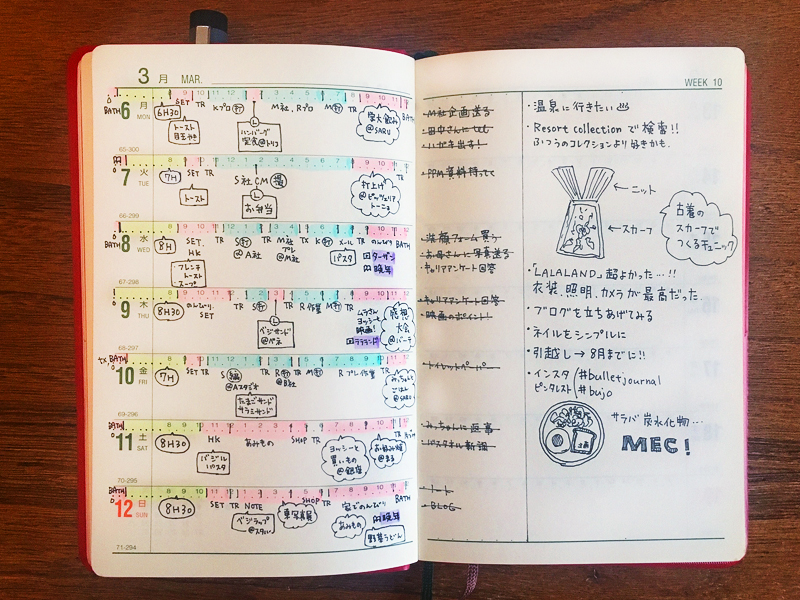 3 月 MAR.
BATH
6 月 MON
65-300
6H30
トースト
目玉やき
SET TR Kプロ 打
L
ハンバーグ
定食@トリコ
M社、Rプロ M打 TR
@SARU
BATH
7 火 TUE
66-299
7H
トースト
SET TR
S社CM 撮
L
お弁当
打上げ
@ピッツェリア
TR
8 水 WED
67-298
8H
フレンチ
トースト
スープ
SET.
HK
TR S打
@A社
TR M社
プレ
@M社
TX K打 メール TR のんびり
パスタ
ターザン
晩年
BATH
9 木 THU
68-297
8H30
のんびり
SET
TR
L
ベジサンド
@ベネ
TR R作業 M打 TR
ムラさん
ヨッシーと
映画!
ララランド
感想
大会
@バーデ
TX, BATH
10 金 FRI
69-296
7H
SET TR S編
@Aスタジオ
たまごサンド
サラミサンド
TR R打
@B社
TR M打 TR R プレ作業 TR
みっちゃんと
ごはん
@SARU
BATH
11 土 SAT
70-295
8H30
HK
バジル
パスタ
あみもの SHOP TR
ヨッシーと
買いもの
@銀座
お好み焼
TR
BATH
12 日 SUN
71-294
8H30
SET TR NOTE
ベジラップ
東写美展
SHOP TR
家でのんびり
あみもの
晩年
野菜うどん
BATH
WEEK 10
・M社企画送る
・田中さんにtel
・PPM資料持ってく
・洗顔フォーム買う
・お母さんに写真送る
・キャリアアンケート回答
・キャリアアンケート回答
・映画のポイント!
・トイレットペーパー
・みっちゃんに返事
・BLOG
・温泉に行きたい♨
・Resort collection で検索!!
ふつうのコレクションより好きかも。
←ニット
←スカーフ
古着の
スカーフで
つくるチュニック
・「LALALAND」超よかった…!!
衣装、照明、カメラが最高だった
・ブログを立ちあげてみる
・ネイルをシンプルに
・引越し→8月までに!!
・インスタ/#bulletjournal
ピンタレスト #bujo
サラバ 炭水化物…
MEC!